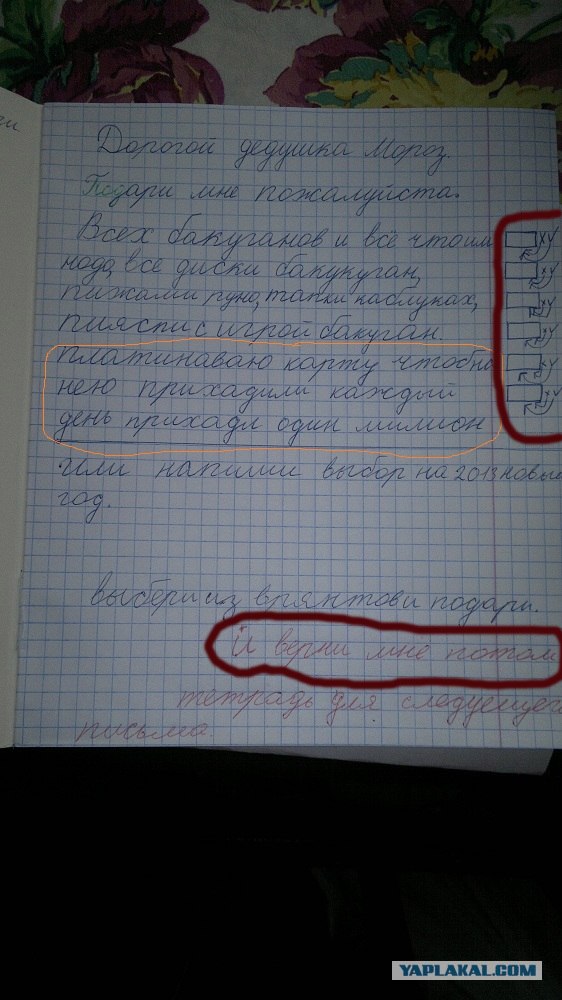 Дорогой дедушка Мороз.
Подари мне пожалуйста.
Всех бакуганов и всё чтоим
нодо, все диски бакукуган,
пижами руно, тапки каблуках,
пияспи с игрой бакуган.
платинаваю карту чтобы на
нею прихадили каждый
день прихадл один милион
Или напиши выбор на 2013 новый
год.
выбери из врянтови подари.
И верни мне потом
тетрадь для следуещего
письма.
ху
ху
ху
ху
ху
ху
YAPLAKAL.COM